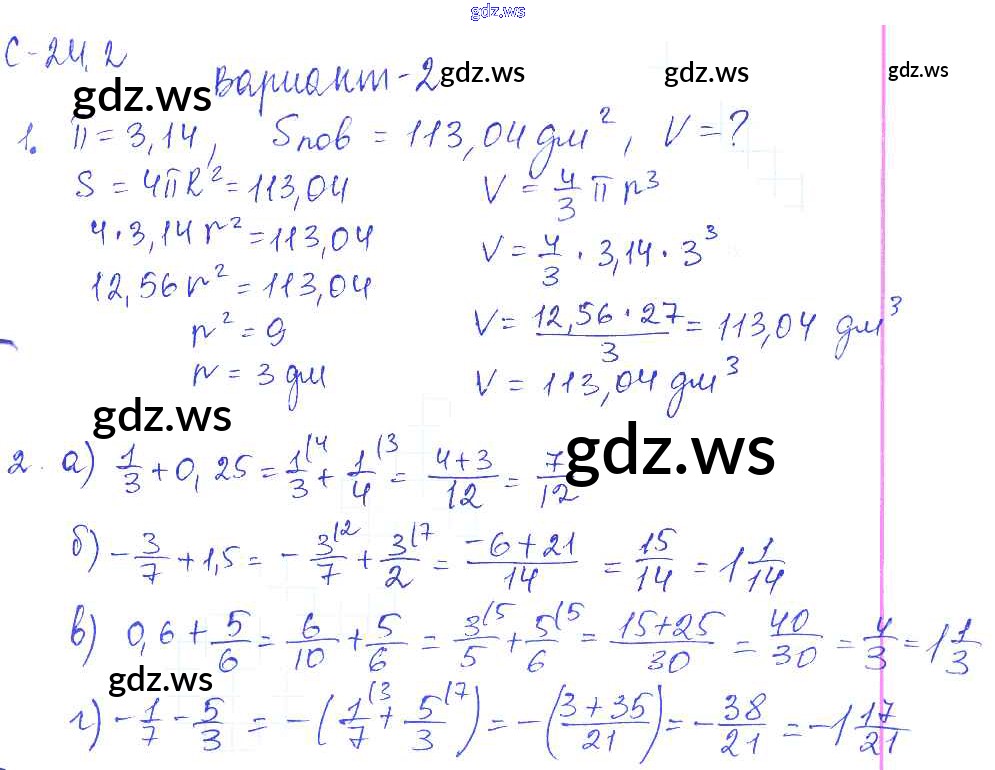 gdz.ws
С-24.2
Вариант-2 gdz.ws gdz.ws gdz.ws
gdz.ws
1. π = 3,14, Sпов = 113,04 дм², V = ?
S = 4πR² = 113,04 V = 4/3 π r³
4·3,14 r² = 113,04 V = 4/3 · 3,14 · 3³
12,56 r² = 113,04
r² = 9 V = (12,56 · 27)/3 = 113,04 дм³
r = 3 дм V = 113,04 дм³
gdz.ws gdz.ws
2. а) 1/3 + 0,25 = 1/3 (4 + 1/4 (3 = (4+3)/12 = 7/12
б) -3/7 + 1,5 = -3/7 (2 + 3/2 (7 = (-6+21)/14 = 15/14 = 1 1/14
в) 0,6 + 5/6 = 6/10 + 5/6 = 3/5 (5 + 5/6 (5 = (15+25)/30 = 40/30 = 4/3 = 1 1/3
gdz.ws
г) -1/7 - 5/3 = -(1/7 (3 + 5/3 (7) = -((3+35)/21) = -38/21 = -1 17/21